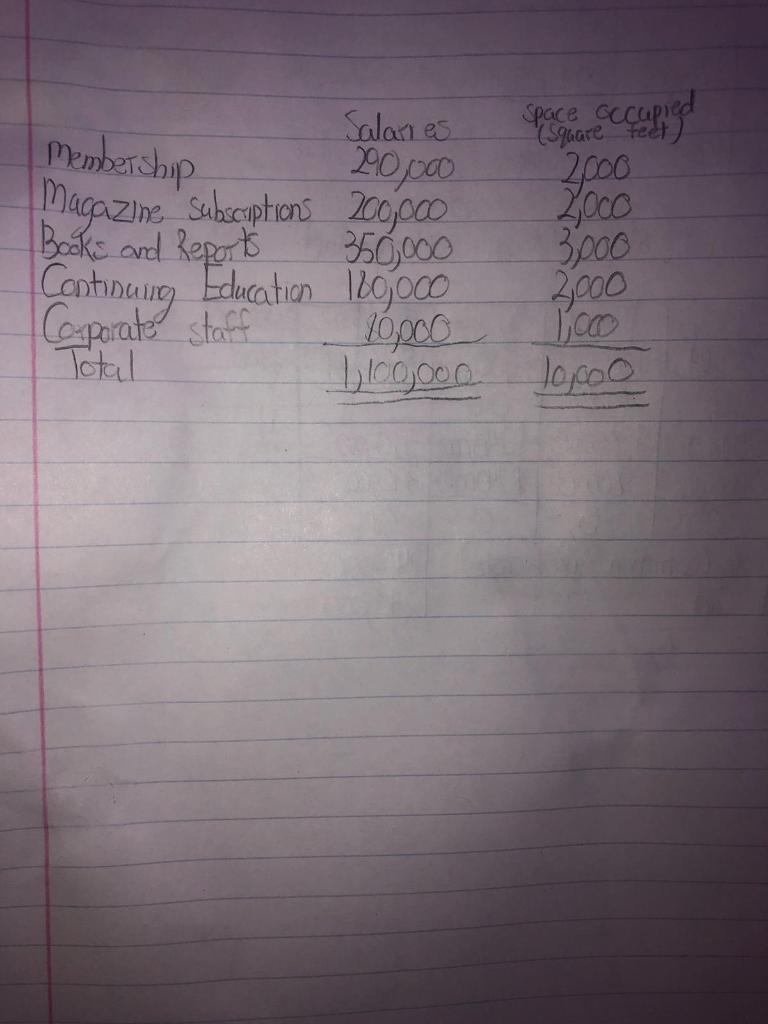 Space occupied
Salaries (Square feet)
Membership 290,000 2,000
Magazine Subscriptions 200,000 2,000
Books and Reports 350,000 3,000
Continuing Education 180,000 2,000
Corporate staff 80,000 1,000
Total 1,100,000 10,000